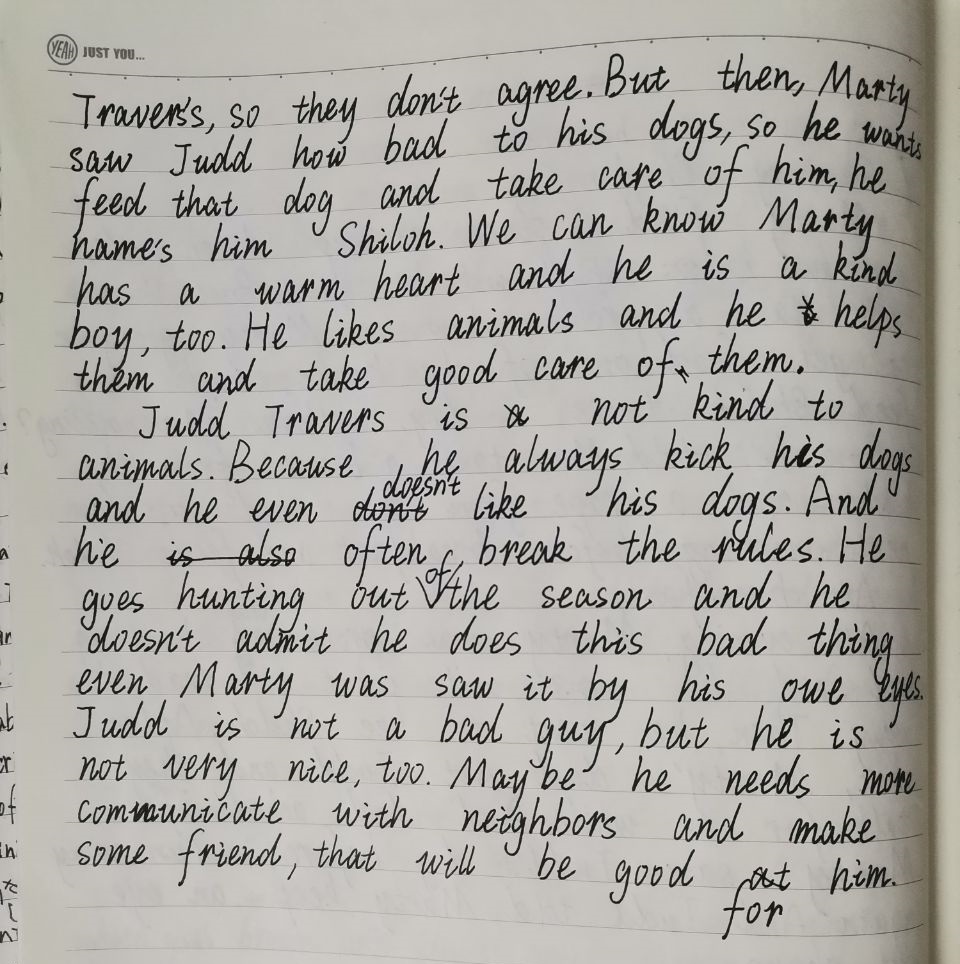 YEAH JUST YOU...
Traver's, so they don't agree. But then, Marty
saw Judd how bad to his dogs, so he wants
feed that dog and take care of him, he
name's him Shiloh. We can know Marty
has a warm heart and he is a kind
boy, too. He likes animals and he helps
them and take good care of them.
Judd Travers is not kind to
animals. Because he always kick his dogs
and he even don't doesn't like his dogs. And
he is also often break the rules. He
goes hunting out of the season and he
doesn't admit he does this bad thing
even Marty was saw it by his owe eyes.
Judd is not a bad guy, but he is
not very nice, too. Maybe he needs more
communicate with neighbors and make
some friend, that will be good at him.
for